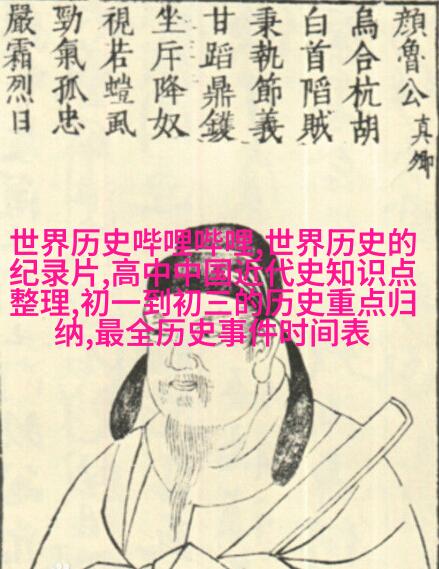 顏魯公真卿
烏合杭胡
白首陷賊
秉執節義
甘蹈鼎鑊
坐斥降奴
視若螘虱
勁氣孤忠
嚴霜烈日
世界历史哔哩哔哩,世界历史的
纪录片,高中中国近代史知识点
整理,初一到初三的历史重点归
纳,最全历史事件时间表